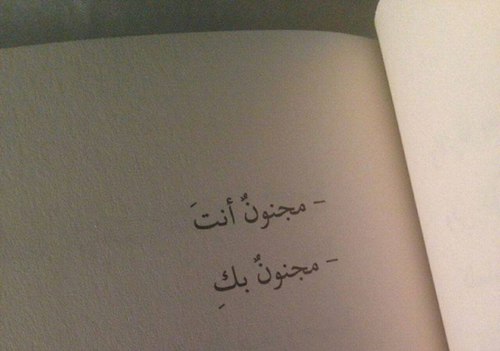 - مجنونٌ أنتَ
- مجنونٌ بكِ